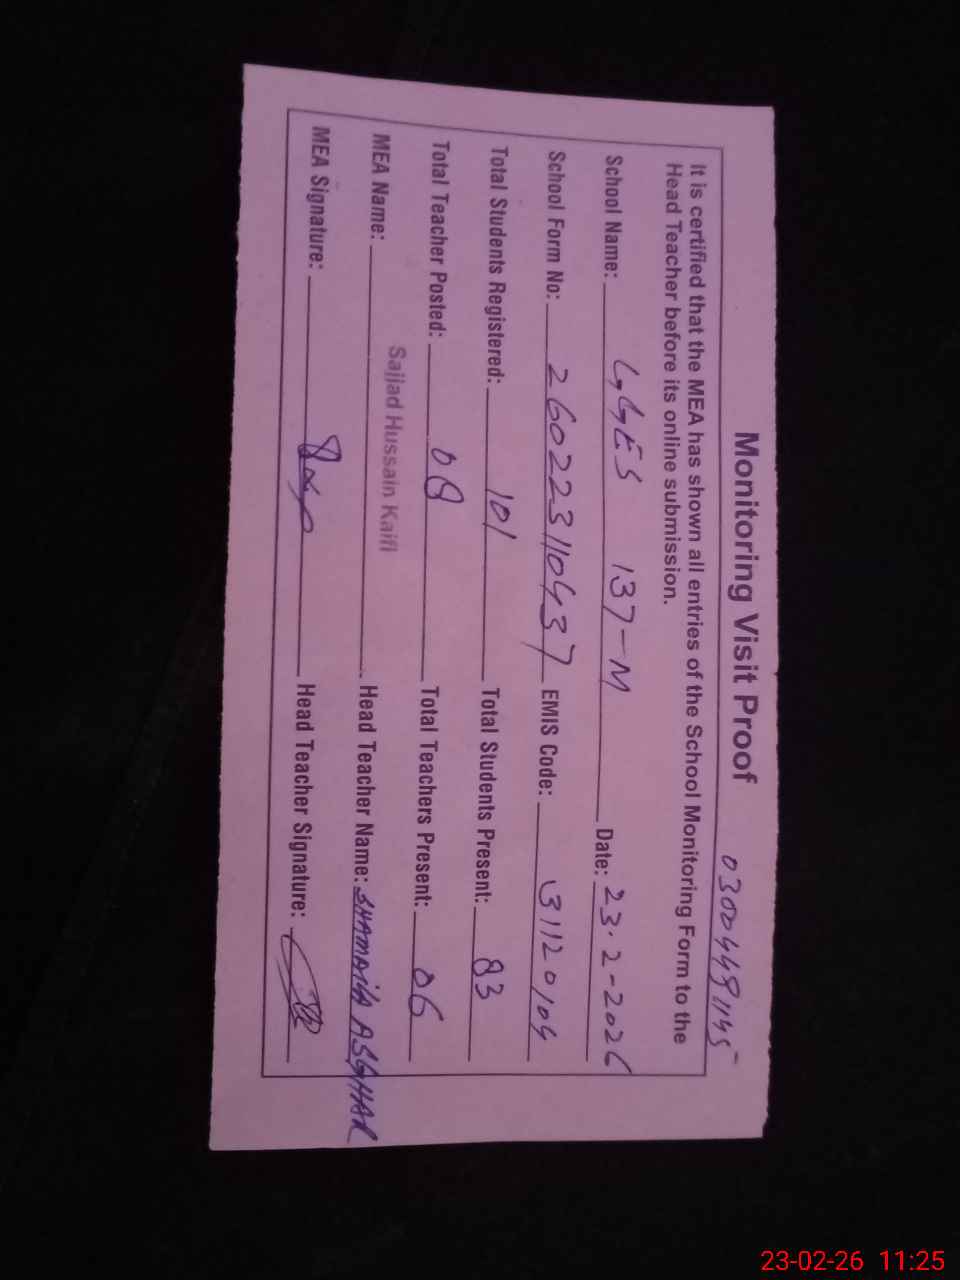 Monitoring Visit Proof 03004481145
It is certified that the MEA has shown all entries of the School Monitoring Form to the
Head Teacher before its online submission.
School Name: GGES 137-M Date: 23.2-2026
School Form No: 260223110437 EMIS Code: 31120104
Total Students Registered: 101 Total Students Present: 83
Total Teacher Posted: 08 Total Teachers Present: 06
MEA Name: Sajjad Hussain Kaifi Head Teacher Name: SHAMAILA ASGHAR
MEA Signature: Head Teacher Signature:
23-02-26 11:25